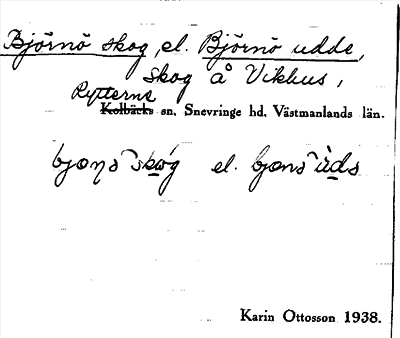 Björnö skog, el. Björnö udde,
skog å Vikhus,
Rytterne
Kolbäcks sn, Snevringe hd. Västmanlands län.
el.
Karin Ottosson 1938.